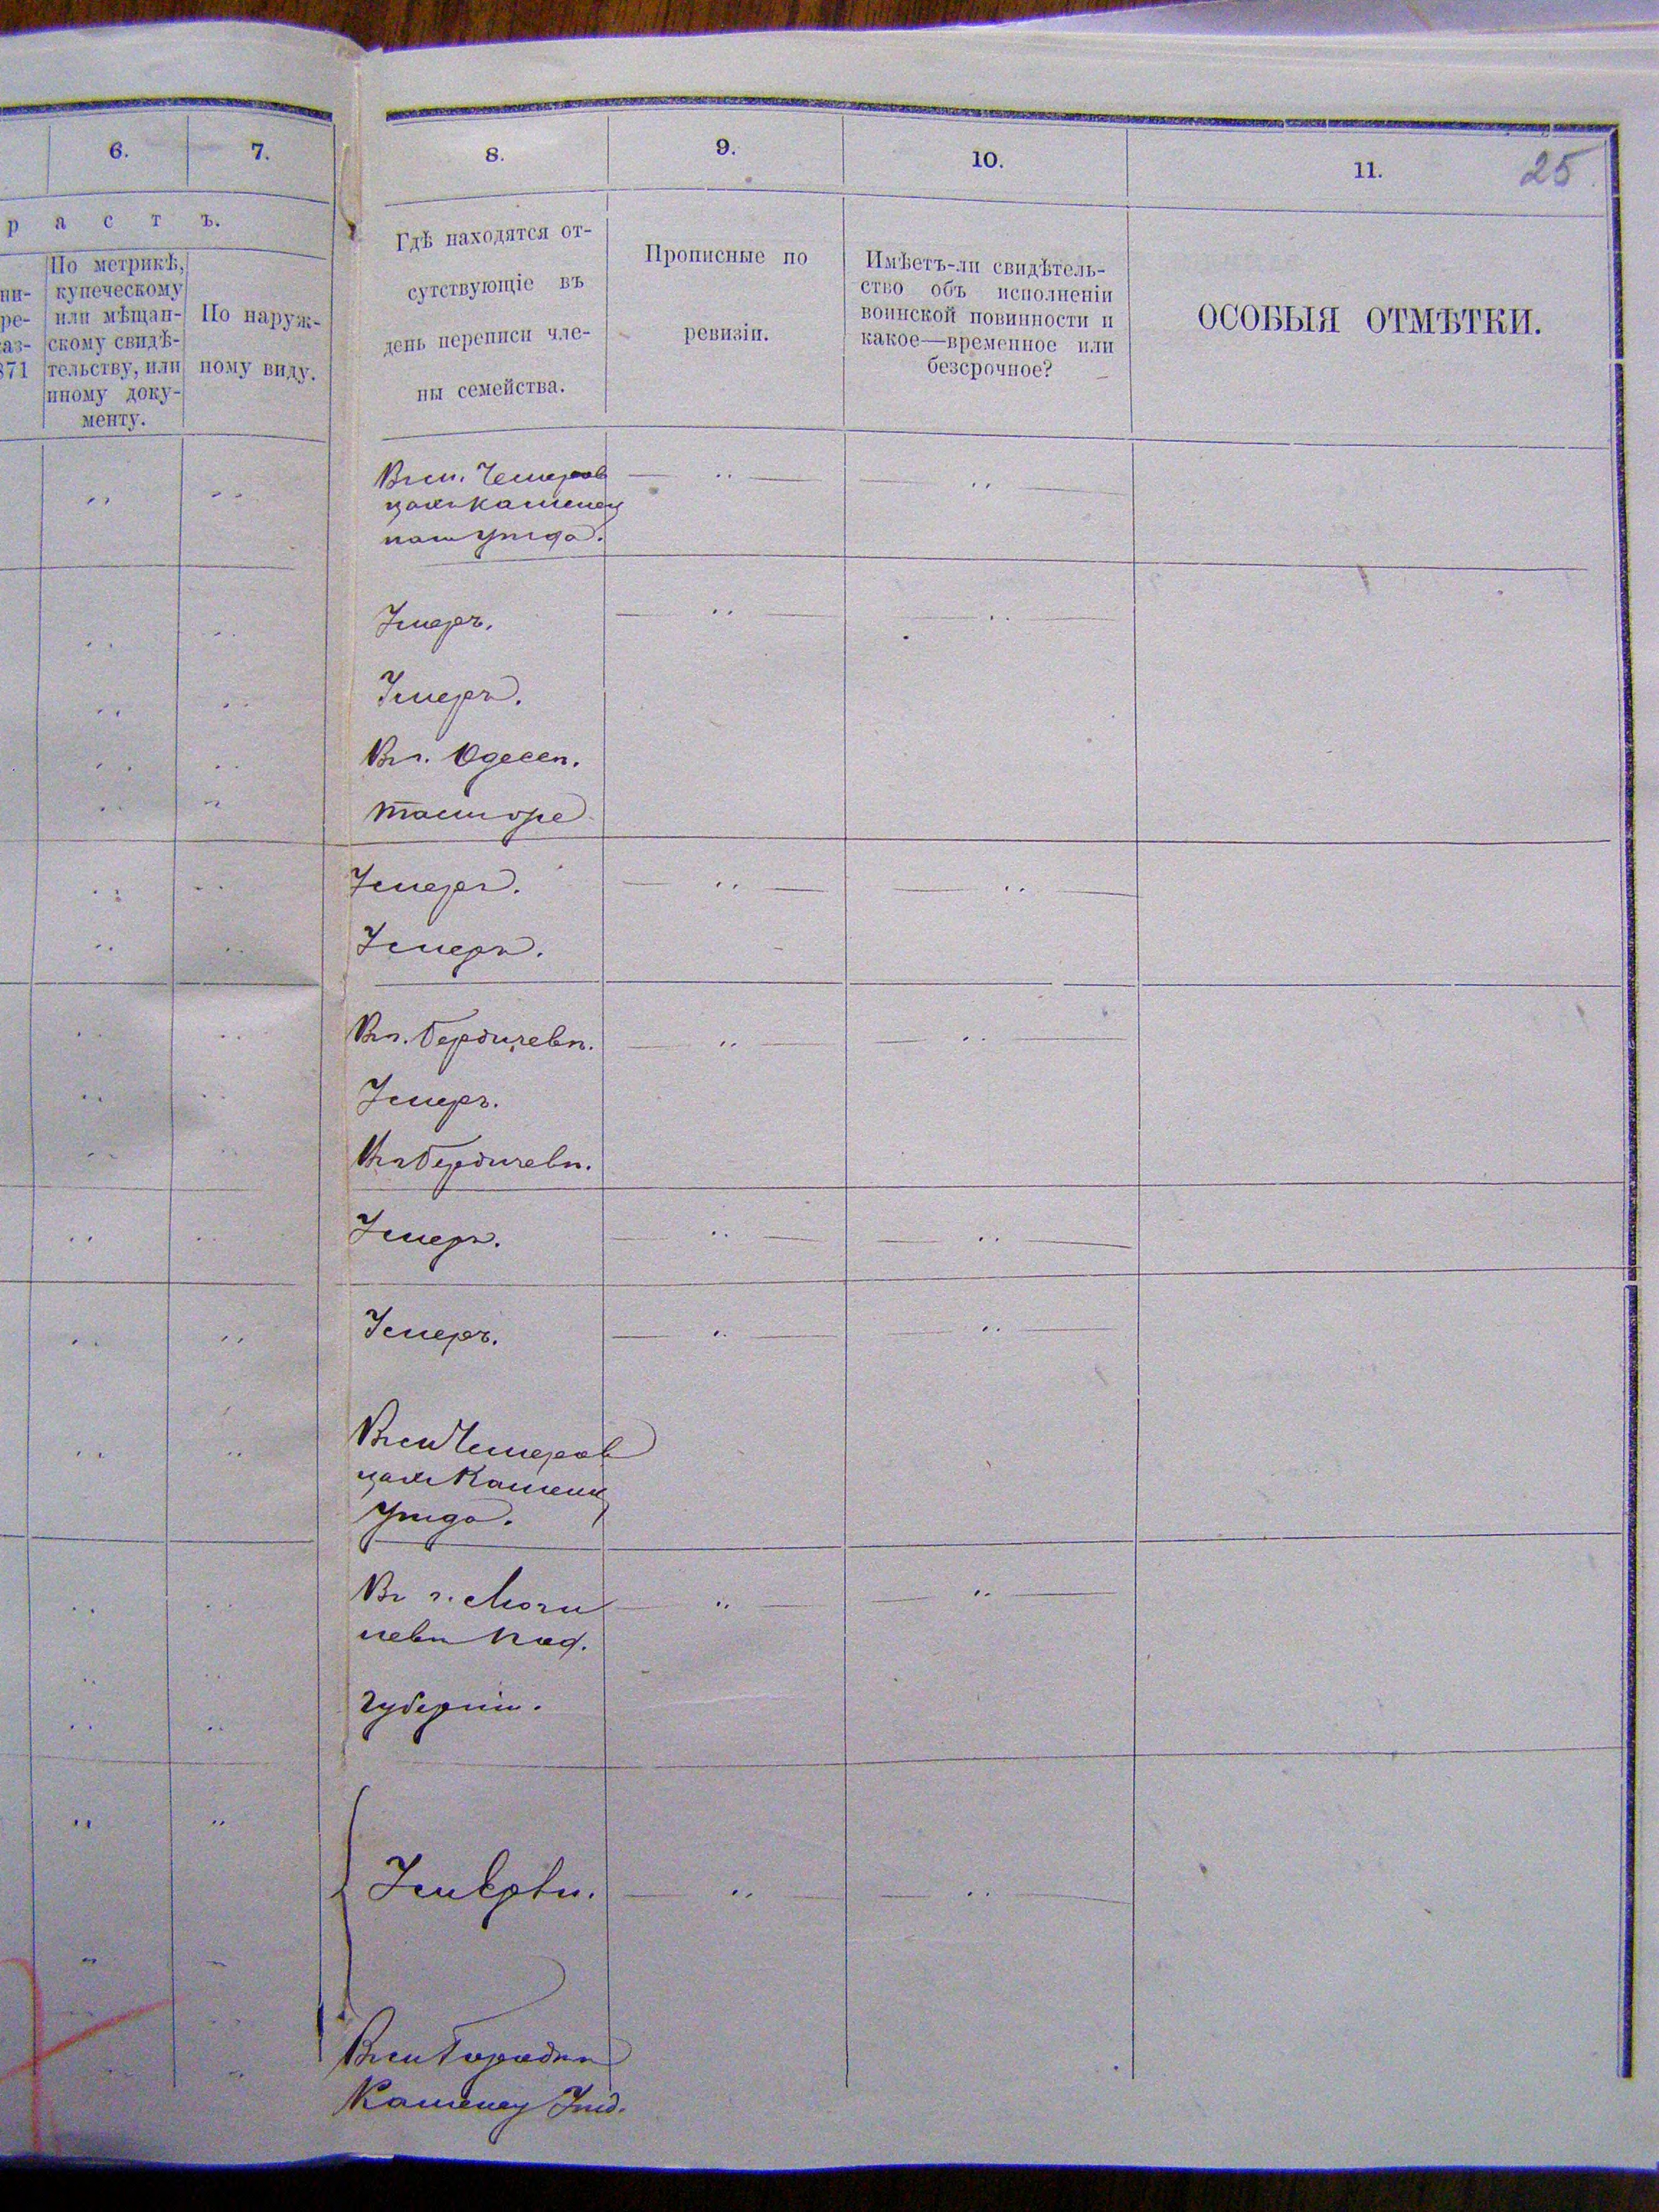 6.
7.
8.
9.
10.
11.
25
р а с т ъ.
ни-
ре-
аз-
871
По метрикѣ,
купеческому
или мѣщан-
скому свидѣ-
тельству, или
иному доку-
менту.
По наруж-
ному виду.
Гдѣ находятся от-
сутствующіе въ
день переписи чле-
ны семейства.
Прописные по
ревизіи.
Имѣетъ-ли свидѣтель-
ство объ исполненіи
воинской повинности и
какое—временное или
безсрочное?
ОСОБЫЯ ОТМѢТКИ.
Въ м. Чемеров
цахъ Каменец
каго уѣзда.
Умеръ.
Умеръ.
Въ г. Одессѣ.
тамже
Умеръ.
Умеръ.
Въ г. Бердичевѣ.
Умеръ.
Въ г. Бердичевѣ.
Умеръ.
Умеръ.
Въ м. Чемеров
цахъ Каменец
уѣзда.
Въ г. Моги
левѣ Под.
губерніи.
Умерли.
Въ м. Городкѣ
Каменец. Уѣзд.